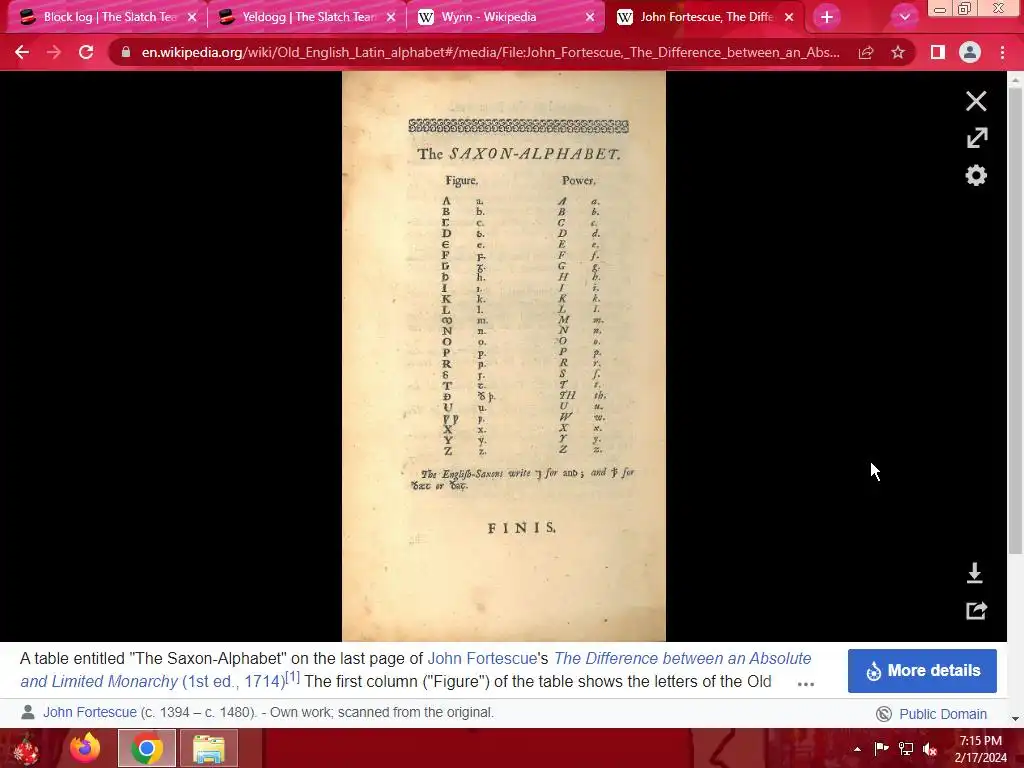 Block log | The Slatch Tea
Yeldogg | The Slatch Tear
Wynn - Wikipedia
John Fortescue, The Diffe
en.wikipedia.org/wiki/Old_English_Latin_alphabet#/media/File:John_Fortescue,_The_Difference_between_an_Abs...
The SAXON-ALPHABET.
Figure. Power.
B b. B b.
D D d.
E e.
F F f.
G g.
h. H h.
I i.
K k. K k.
L l. L l.
m. M m.
N n. N n.
O o. O o.
P p. P p.
R R r.
S ſ.
T T t.
Ð ð þ. TH th.
U u. U u.
W w.
X x. X x.
Y ẏ. Y y.
Z z. Z z.
The Engliſh-Saxons write ⁊ for and; and ꝥ for
or
FINIS.
A table entitled "The Saxon-Alphabet" on the last page of John Fortescue's The Difference between an Absolute
and Limited Monarchy (1st ed., 1714)[1] The first column ("Figure") of the table shows the letters of the Old ...
More details
John Fortescue (c. 1394 – c. 1480). - Own work; scanned from the original.
Public Domain
7:15 PM
2/17/2024